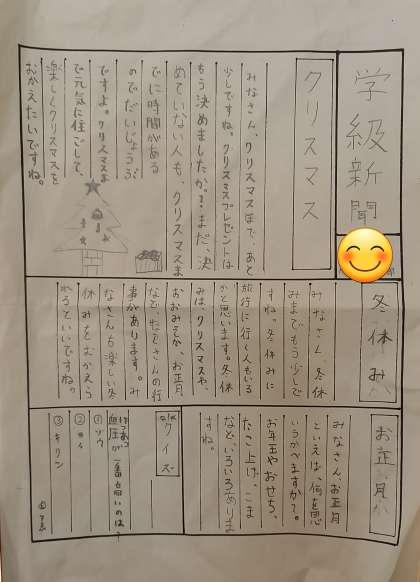 学級新聞
クリスマス
みなさん、クリスマスまで、あと
少しですね。クリスマスプレゼントは
もう決めましたか？まだ、決
めていない人も、クリスマスま
でに時間がある
のでだいじょうぶ
ですよ。クリスマスま
で元気に住ごして、
楽しくクリスマスを
むかえたいですね。
冬休み
みなさん、冬休
みまでもう少しで
すね。冬休みに
旅行に行く人もいる
かと思います。冬休
みは、クリスマスや、
おおみそか、お正月
など、たくさんの行
事があります。み
なさんも楽しい冬
休みをむかえら
れるといいですね。
お正月
みなさん、お正月
といえば、何を思
いうかべますか？
お年玉やおせち、
たこ上げ、こま
など、いろいろありま
すね。
クイズ
血圧が一番高いのは？
①ゾウ
②
③キリン